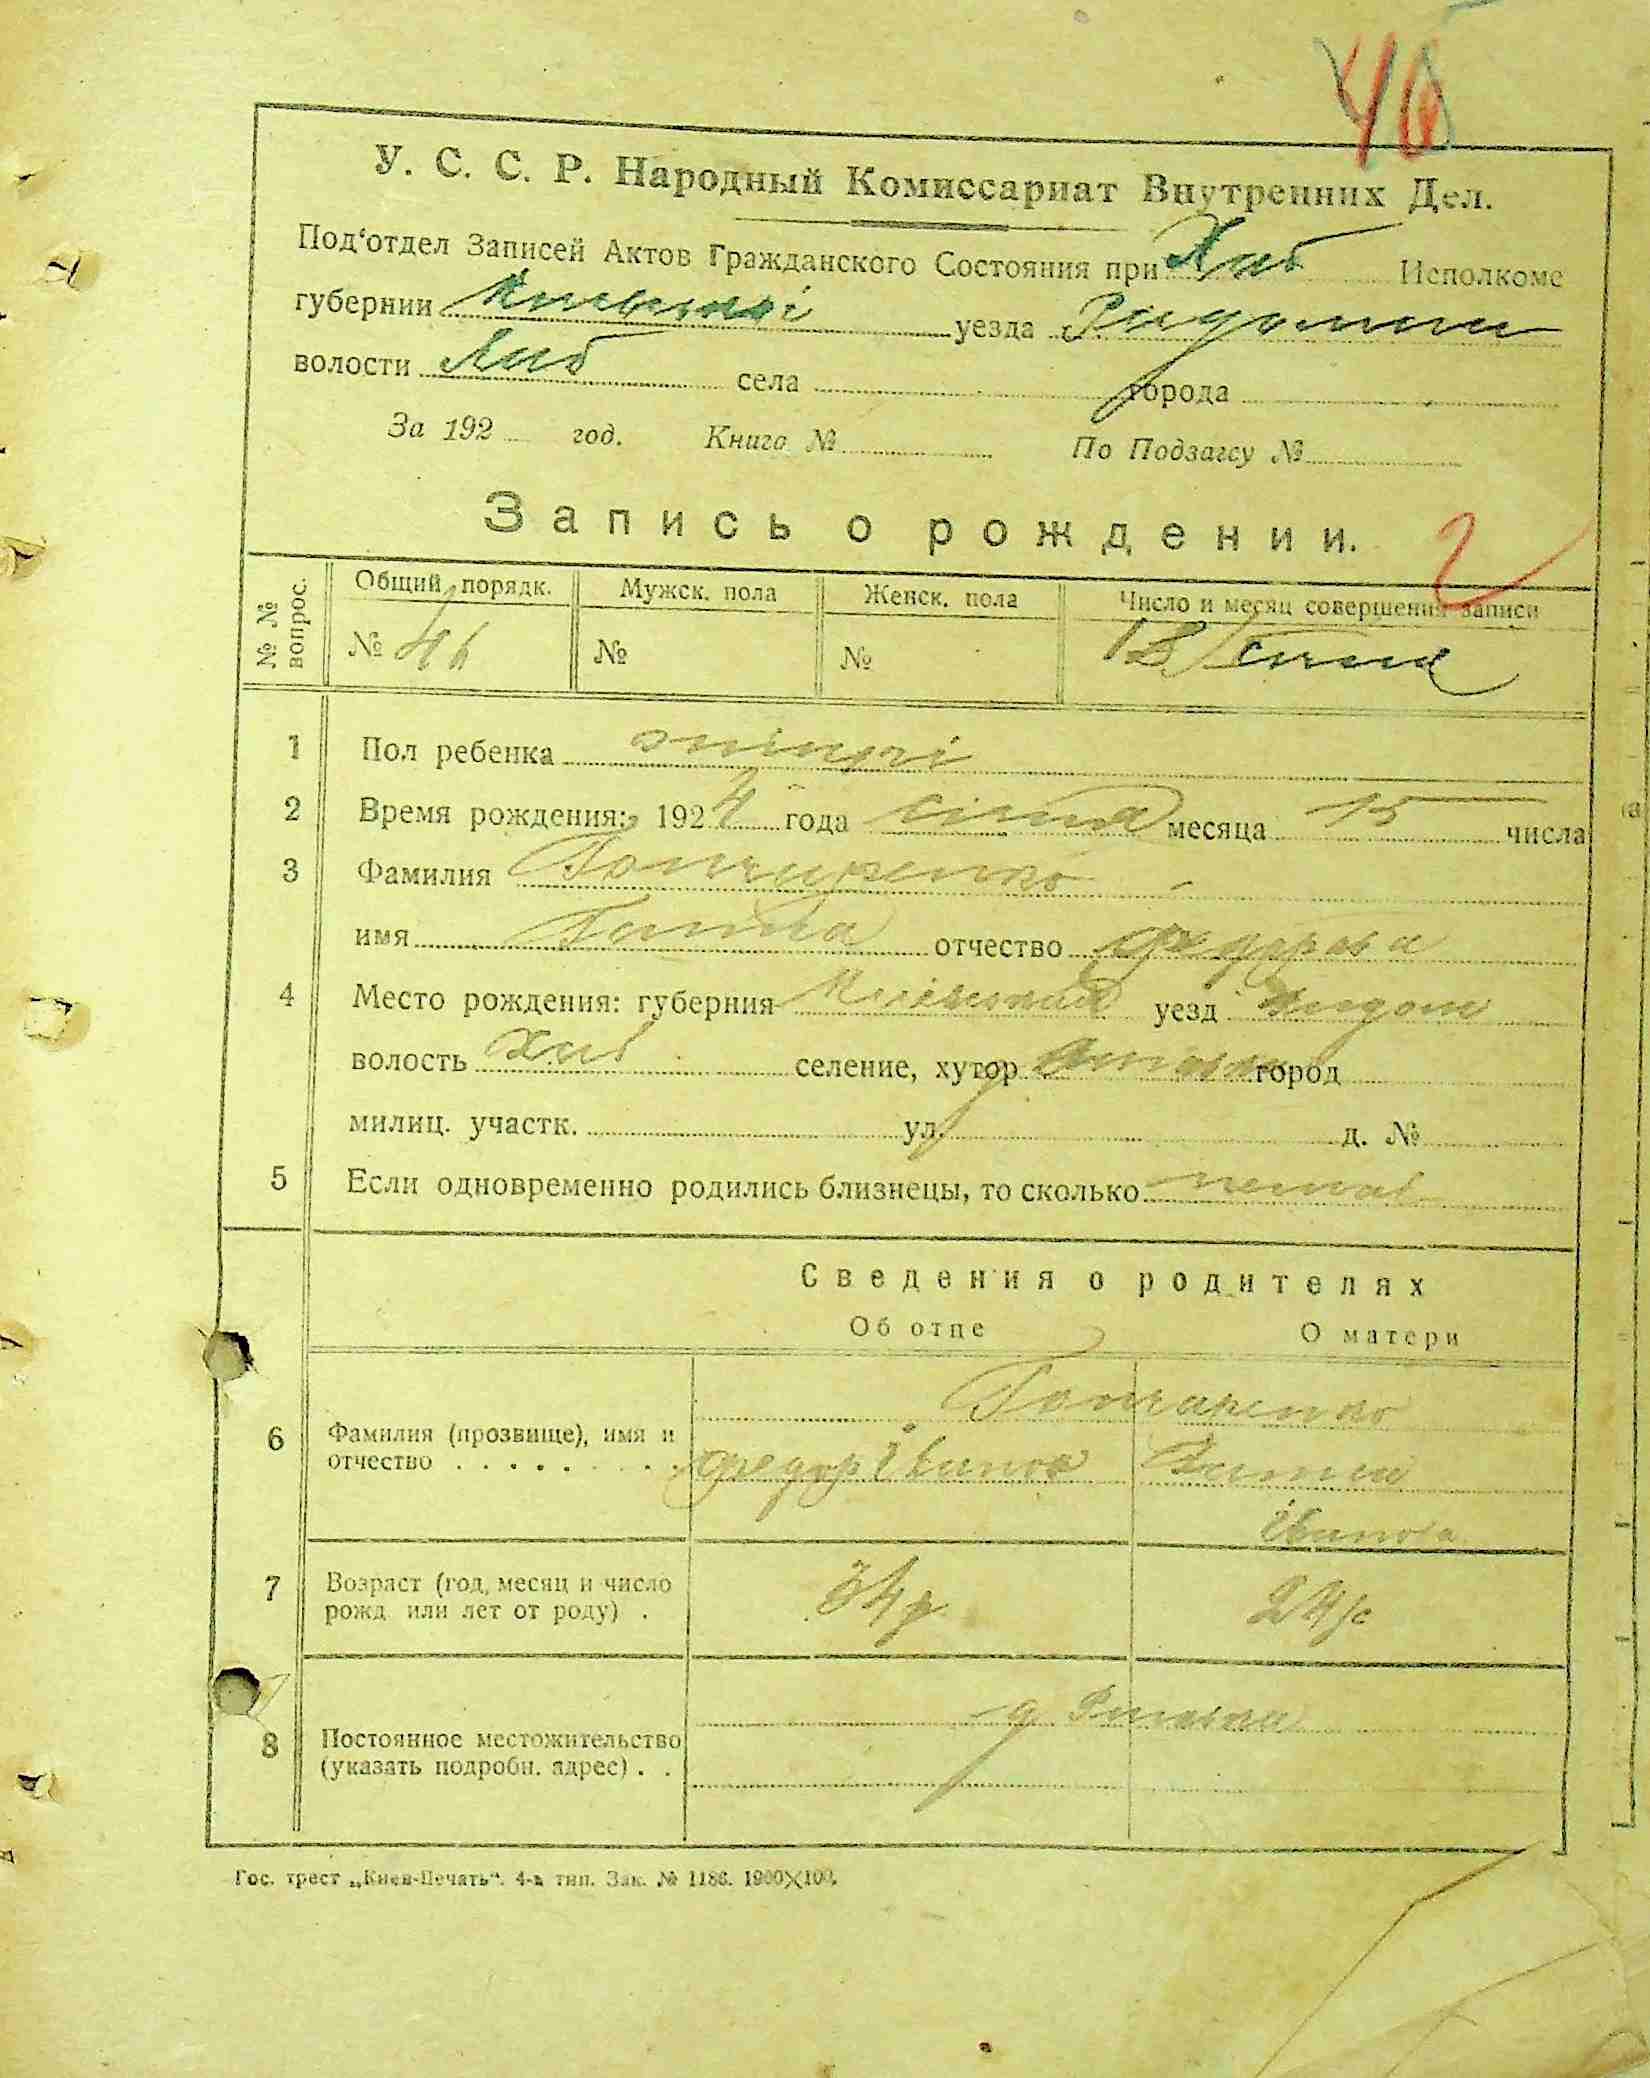 46
У. С. С. Р. Народный Комиссариат Внутренних Дел.
Под‘отдел Записей Актов Гражданского Состояния при Хаб Исполкоме
губернии уезда
волости Хаб села города
За 192 год. Книга № По Подзагсу №
Запись о рождении.
2
№ № вопрос. Общий порядк. Мужск. пола Женск. пола Число и месяц совершения записи
№ 46 № № 18 січня
1 Пол ребенка жіночі
2 Время рождения: 1924 года січня месяца 15 числа
3 Фамилия Гончаренко
имя Ганна отчество Федорова
4 Место рождения: губерния уезд
волость Хаб селение, хутор город
милиц. участк. ул. д. №
5 Если одновременно родились близнецы, то сколько немає
Сведения о родителях
Об отце О матери
Гончаренко
6 Фамилия (прозвище), имя и
отчество Федор Іванов Ганна
Іванова
7 Возраст (год, месяц и число
рожд или лет от роду) . 34 р 24 р
8 Постоянное местожительство
(указать подробн. адрес) . .
Гос. трест „Киев-Печать“. 4-я тип. Зак. № 1186. 1900×100.